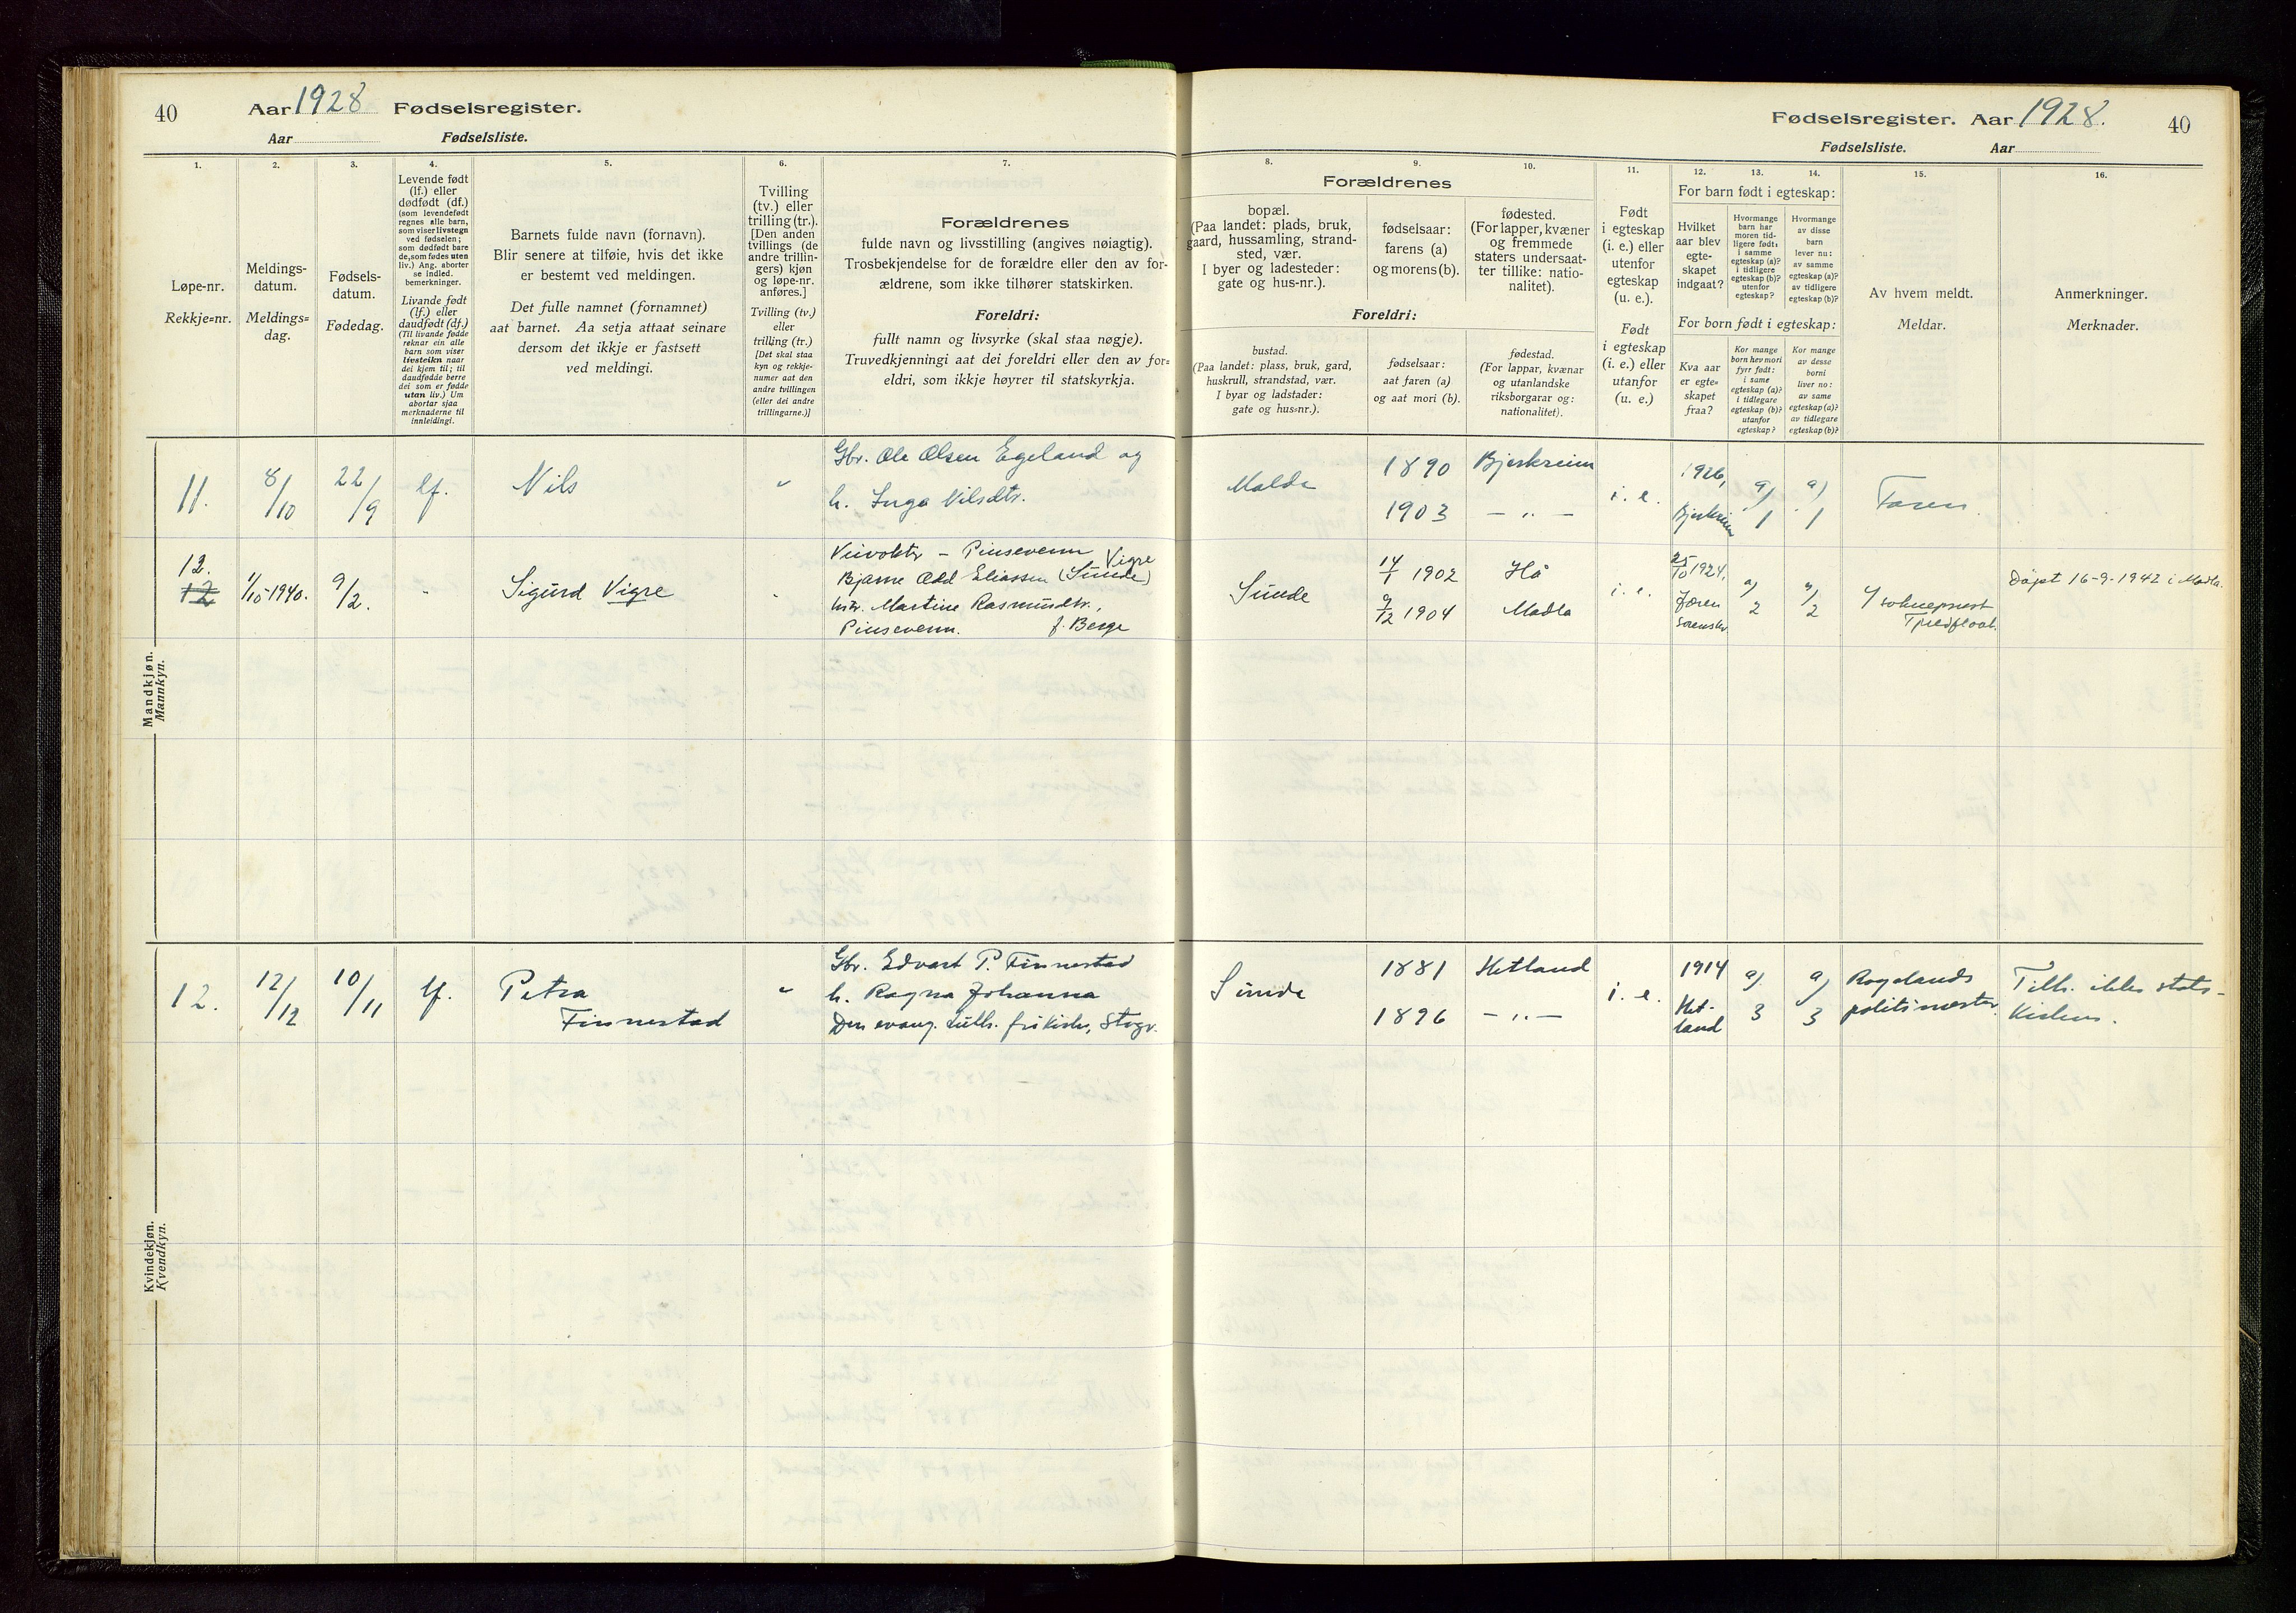 40
Aar 1928 Fødselsregister.
Aar Fødselsliste.
1.
Løpe-nr.
Rekkje=nr.
2.
Meldings-
datum.
Meldings=
dag.
3.
Fødsels-
datum.
Fødedag.
4.
Levende født
(lf.) eller
dødfødt (df.)
(som levendefødt
regnes alle barn,
som viser livstegn
ved fødselen;
som dødfødt bare
de, som fødes uten
liv.) Ang. aborter
se indled.
bemerkninger.
Livande født
(lf.) eller
daudfødt (df.)
(Til livande fødde
reknar ein alle
barn som viser
livsteikn naar
dei kjem til; til
daudfødde berre
dei som er fødde
utan liv.) Um
abortar sjaa
merknaderne til
innleidingi.
5.
Barnets fulde navn (fornavn).
Blir senere at tilføie, hvis det ikke
er bestemt ved meldingen.
Det fulle namnet (fornamnet)
aat barnet. Aa setja attaat seinare
dersom det ikkje er fastsett
ved meldingi.
6.
Tvilling
(tv.) eller
trilling (tr.).
[Den anden
tvillings (de
andre trillin-
gers) kjøn
og løpe-nr.
anføres.]
Tvilling (tv.)
eller
trilling (tr.)
[Det skal staa
kyn og rekkje-
numer aat den
andre tvillingen
(eller dei andre
trillingarne.)]
7.
Forældrenes
fulde navn og livsstilling (angives nøiagtig).
Trosbekjendelse for de forældre eller den av for-
ældrene, som ikke tilhører statskirken.
Foreldri:
fullt namn og livsyrke (skal staa nøgje).
Truvedkjenningi aat dei foreldri eller den av for=
eldri, som ikkje høyrer til statskyrkja.
Mandkjøn.
Mannkyn.
11. 8/10 22/9 lf. Nils "
Gbr. Ole Olsen Egeland og
h. Inga Nilsdtr.
12.
12 1/10-1940. 9/2. " Sigurd Vigre "
Veivokter - Pinsevenn
Vigre
Bjarne Odd Eliassen (Sunde)
hstr. Martine Rasmusdtr.,
Pinsevenn. f. Berge
Kvindekjøn.
Kvendkyn.
12. 12/12 10/11 lf. Petra
Finnestad "
Gbr. Edvart P. Finnestad
h. Ragna Johanna
Den evang. luth. frikirke, Stvgr.
Fødselsregister. Aar 1928. 40
Fødselsliste. Aar
8.
Forældrenes
bopæl.
(Paa landet: plads, bruk,
gaard, hussamling, strand-
sted, vær.
I byer og ladesteder:
gate og hus-nr.).
Foreldri:
bustad.
(Paa landet: plass, bruk, gard,
huskrull, strandstad, vær.
I byar og ladstader:
gate og hus=nr.).
9.
fødselsaar:
farens (a)
og morens (b).
fødselsaar:
aat faren (a)
og aat mori (b).
10.
fødested.
(For lapper, kvæner
og fremmede
staters undersaat-
ter tillike: natio-
nalitet).
fødestad.
(For lappar, kvænar
og utanlandske
riksborgarar og:
nationalitet).
11.
Født
i egteskap
(i. e.) eller
utenfor
egteskap
(u. e.).
Født
i egteskap
(i. e.) eller
utanfor
(u. e.)
12. 13. 14.
For barn født i egteskap:
Hvilket
aar blev
egte-
skapet
indgaat?
Hvormange
barn har
moren tid-
ligere født:
i samme
egteskap (a)?
i tidligere
egteskap (b)?
utenfor
egteskap?
Hvormange
av disse
barn
lever nu:
av samme
egteskap (a)?
av tidligere
egteskap (b)?
For born født i egteskap:
Kva aar
er egte=
skapet
fraa?
Kor mange
born hev mori
fyrr født:
i same
egteskap (a)?
i tidlegare
egteskap (b)?
utanfor
egteskap?
Kor mange
av desse
borni
liver no:
av same
egteskap (a)?
av tidlegare
egteskap (b)?
15.
Av hvem meldt.
Meldar.
16.
Anmerkninger.
Merknader.
Malde 1890 Bjerkreim
1903 — " —
i. e. 1926,
Bjerkreim a) 1 a) 1 Faren.
Sunde 14/1 1902 Hå
9/12 1904 Madla
i. e. 25/10 1924,
Jæren
Sorenskr. a) 2 a) 2
Døpt 16-9-1942 i Madla.
Sunde 1881 Hetland
1896 — " —
i. e. 1914
Het-
land a) 3 a) 3
Rogalands
politimester.
Tilh. ikke stats-
kirken.